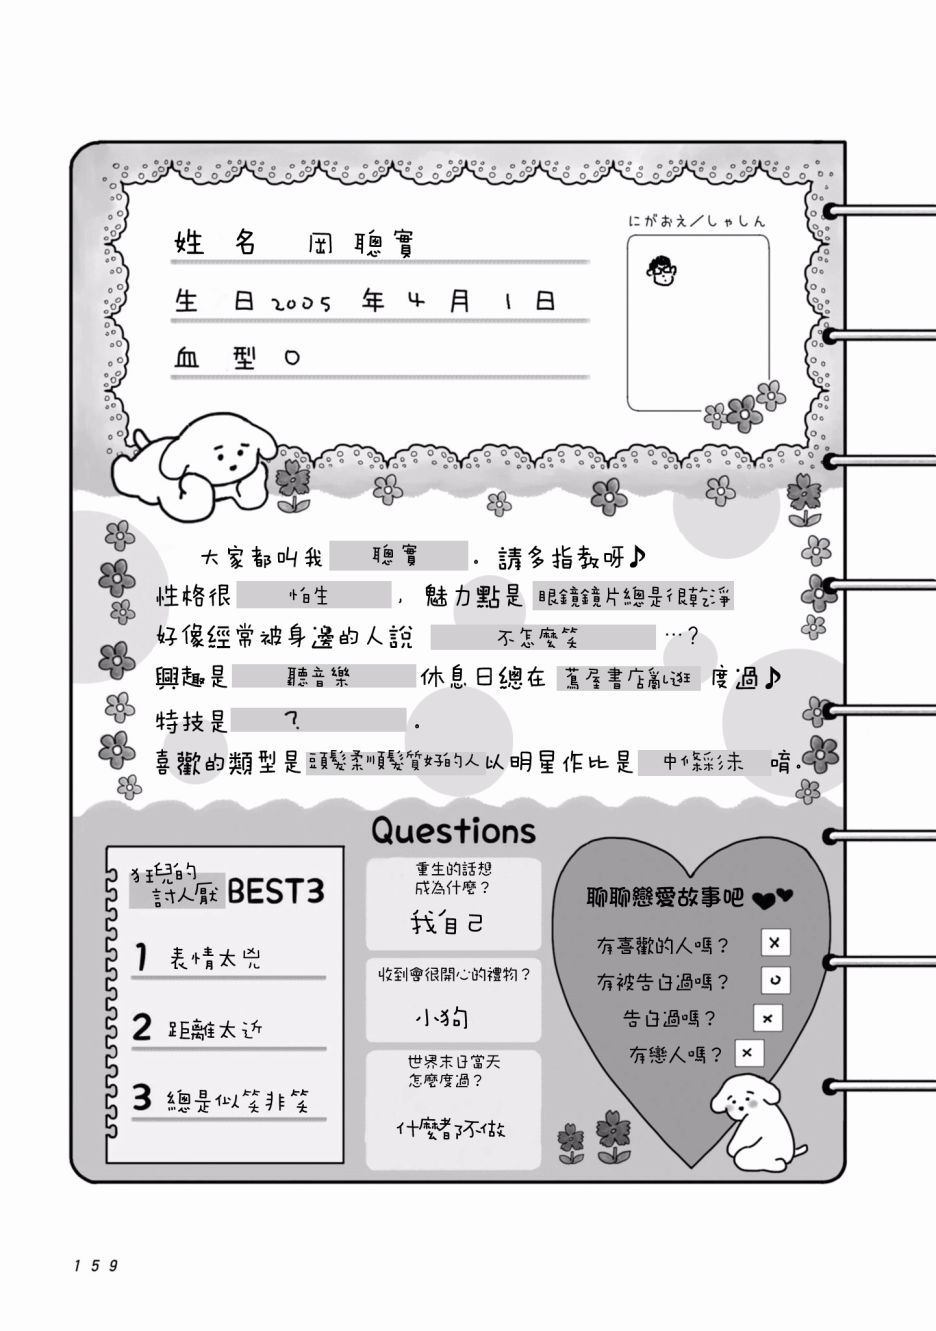 にがおえ／しゃしん
姓 名 岡 聰實
生 日 2005 年 4 月 1 日
血 型 O
大家都叫我 聰實 。請多指教呀♪
性格很 怕生 ，魅力點是 眼鏡鏡片總是很乾淨
好像經常被身邊的人說 不怎麼笑 …？
興趣是 聽音樂 休息日總在 蔦屋書店亂逛 度過♪
特技是 ？ 。
喜歡的類型是 頭髮柔順髮質好的人 以明星作比是 中條彩未 唷。
Questions
狂兒的
討人厭 BEST3
1 表情太兇
2 距離太近
3 總是似笑非笑
重生的話想
成為什麼？
我自己
收到會很開心的禮物？
小狗
世界末日當天
怎麼度過？
什麼都不做
聊聊戀愛故事吧
有喜歡的人嗎？ ×
有被告白過嗎？ ○
告白過嗎？ ×
有戀人嗎？ ×
159